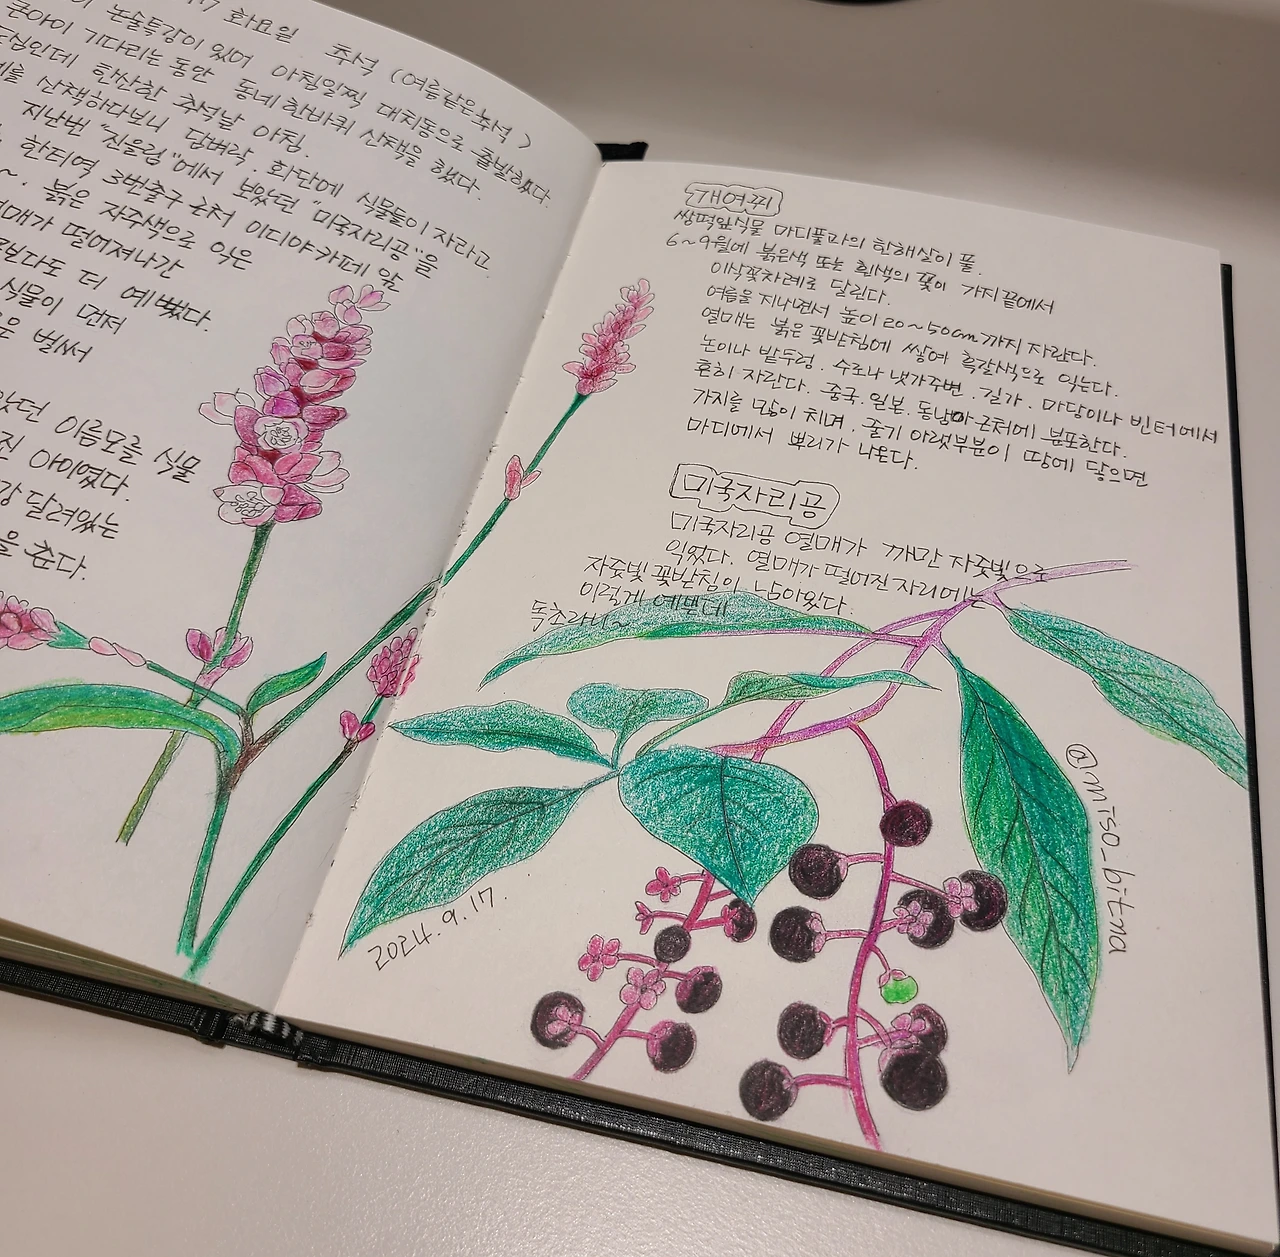 17 화요일 추석 (여름같은 추석)
논술특강이 있어 아침일찍 대치동으로 출발했다.
큰아이 기다리는 동안 동네 한바퀴 산책을 했다.
도심인데 한산한 추석날 아침.
산책하다보니 담벼락. 화단에 식물들이 자라고
지난번 "진을림"에서 보았던 "미국자리공"을
한티역 3번출구 근처 이디야카페 앞
~. 붉은 자주색으로 익은
열매가 떨어져나간
꽃보다도 더 예뻤다.
식물이 먼저
벌써
았던 이름모를 식물
아이였다.
달려있는
을 준다.
개여뀌
쌍떡잎식물 마디풀과의 한해살이 풀.
6~9월에 붉은색 또는 흰색의 꽃이 가지끝에서
이삭꽃차례로 달린다.
여름을 지나면서 높이 20~50cm까지 자란다.
열매는 붉은 꽃받침에 쌓여 흑갈색으로 익는다.
논이나 밭두렁. 수로나 냇가주변. 길가. 마당이나 빈터에서
흔히 자란다. 중국. 일본. 동남아 근처에 분포한다.
가지를 많이 치며. 줄기 아랫부분이 땅에 닿으면
마디에서 뿌리가 나온다.
미국자리공
미국자리공 열매가 까만 자줏빛으로
익었다. 열매가 떨어진 자리에는
자줏빛 꽃받침이 남아있다.
이렇게 예쁜데
독초라니~
@miso_bitna
2024.9.17.